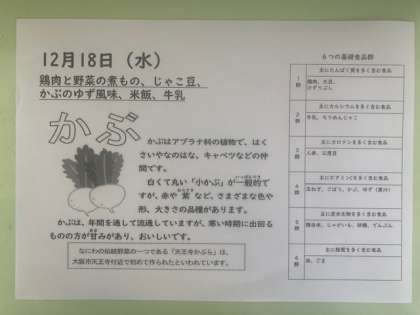 12月18日（水）
鶏肉と野菜の煮もの、じゃこ豆、
かぶのゆず風味、米飯、牛乳
かぶ
かぶはアブラナ科の植物で、はく
さいやなのはな、キャベツなどの仲
間です。
白くて丸い「小かぶ」が一般的で
すが、赤や紫など、さまざまな色や
形、大きさの品種があります。
かぶは、年間を通して流通していますが、寒い時期に出回る
ものの方が甘みがあり、おいしいです。
なにわの伝統野菜の一つである「天王寺かぶら」は、
大阪市天王寺付近で初めて作られたといわれています。
６つの基礎食品群
主にたんぱく質を多く含む食品
1群
鶏肉、大豆、
主にカルシウムを多く含む食品
2群
牛乳、ちりめんじゃこ
主にカロテンを多く含む食品
3群
にんじん、三度豆
主にビタミンCを多く含む食品
4群
玉ねぎ、ごぼう、かぶ、ゆず（果汁）
主に炭水化物を多く含む食品
5群
精白米、じゃがいも、砂糖、でんぷん、
主に脂肪を多く含む食品
6群
油、ごま